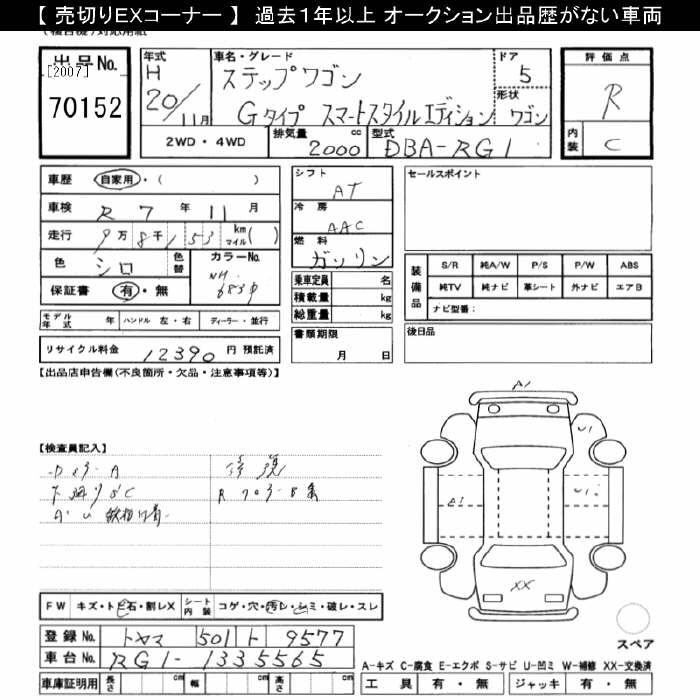 【 売切りEXコーナー 】 過去１年以上 オークション出品歴がない車両
出品No.
[2007]
70152
年式 H 20/11月
車名・グレード
ステップワゴン
Gタイプ スマートスタイルエディション
ドア 5
形状 ワゴン
評価点
R
内装 C
2WD・4WD
排気量 2000 cc
型式 DBA-RG1
車歴 自家用・( )
車検 R 7 年 11 月
走行 9万8千153 km マイル( )
色 シロ 色替
カラーNo.
保証書 有・無
シフト AT
冷房 AAC
燃料 ガソリン
乗車定員 名
積載量 kg
総重量 kg
セールスポイント
装備品
S/R 純A/W P/S P/W ABS
純TV 純ナビ 革シート 外ナビ エアB
ナビ型番：
モデル年式 年 ハンドル 左・右 ディーラー・並行
書類期限
月 日
後日品
リサイクル料金 12390 円 預託済
【出品店申告欄(不良箇所・欠品・注意事項等)】
【検査員記入】
A1
U1
A1
U1
XX
FW キズ・トビ石・割レX シート内装 コゲ・穴・汚レ・シミ・破レ・スレ
登録No. トヤマ 501 ト 9577
車台No. RG1-1335565
スペア
A-キズ C-腐食 E-エクボ S-サビ U-凹ミ W-補修 XX-交換済
車庫証明用 長さ cm 幅 cm 高さ cm
工具 有・無 ジャッキ 有・無